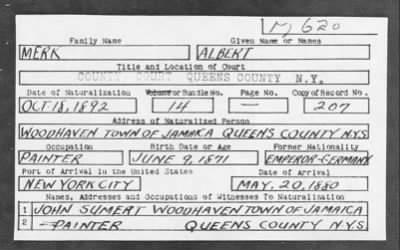 M 620
Family Name Given Name or Names
MERK ALBERT
Title and Location of Court
COUNTY COURT QUEENS COUNTY N.Y.
Date of Naturalization Volume or Bundle No. Page No. Copy of Record No.
OCT. 18, 1892 14 — 207
Address of Naturalized Person
WOODHAVEN TOWN OF JAMAICA QUEENS COUNTY N.Y.S
Occupation Birth Date or Age Former Nationality
PAINTER JUNE 9, 1871 EMPEROR-GERMANY
Port of Arrival in the United States Date of Arrival
NEW YORK CITY MAY, 20, 1880
Names, Addresses and Occupations of Witnesses To Naturalization
1 JOHN SUMERT WOODHAVEN TOWN OF JAMAICA
2 -PAINTER QUEENS COUNTY N.Y.S